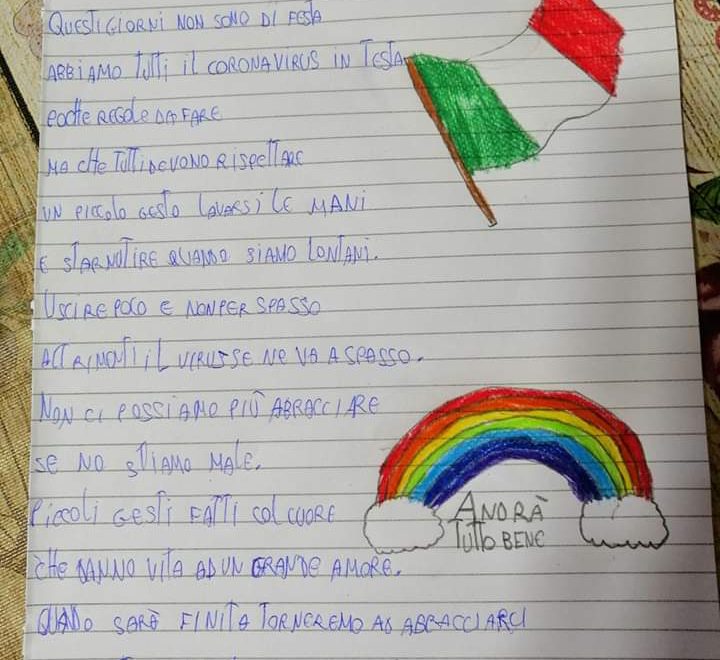 QUESTI GIORNI NON SONO DI FESTA
ABBIAMO TUTTI IL CORONAVIRUS IN TESTA
POCHE REGOLE DA FARE
MA CHE TUTTI DEVONO RISPETTARE
UN PICCOLO GESTO LAVARSI LE MANI
E STARNUTIRE QUANDO SIAMO LONTANI.
USCIRE POCO E NON PER SPASSO
ALTRIMENTI IL VIRUS SE NE VA A SPASSO.
NON CI POSSIAMO PIÙ ABBRACCIARE
SE NO STIAMO MALE.
PICCOLI GESTI FATTI COL CUORE
CHE DANNO VITA AD UN GRANDE AMORE.
QUANDO SARÀ FINITA TORNEREMO AD ABBRACCIARCI
ANDRÀ
TUTTO BENE